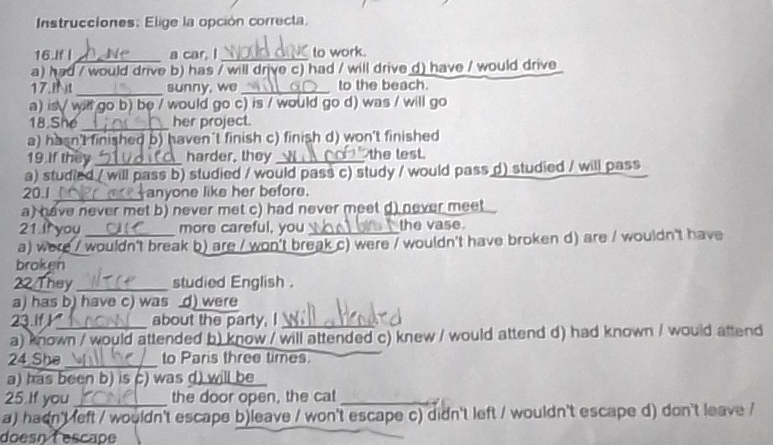 Instrucciones: Elige la opción correcta.
16.If I have a car, I would drive to work.
a) had / would drive b) has / will drive c) had / will drive d) have / would drive
17.If it is sunny, we will go to the beach.
a) is / will go b) be / would go c) is / would go d) was / will go
18.She finish her project.
a) hasn't finished b) haven't finish c) finish d) won't finished
19.If they studied harder, they will pass the test.
a) studied / will pass b) studied / would pass c) study / would pass d) studied / will pass
20.I never meet anyone like her before.
a) have never met b) never met c) had never meet d) never meet
21.If you are more careful, you the vase.
a) were / wouldn't break b) are / won't break c) were / wouldn't have broken d) are / wouldn't have
broken
22.They were studied English .
a) has b) have c) was d) were
23.If I know about the party, I will attended
a) known / would attended b) know / will attended c) knew / would attend d) had known / would attend
24.She will be to Paris three times.
a) has been b) is c) was d) will be
25.If you the door open, the cat
a) hadn't left / wouldn't escape b)leave / won't escape c) didn't left / wouldn't escape d) don't leave /
doesn't escape